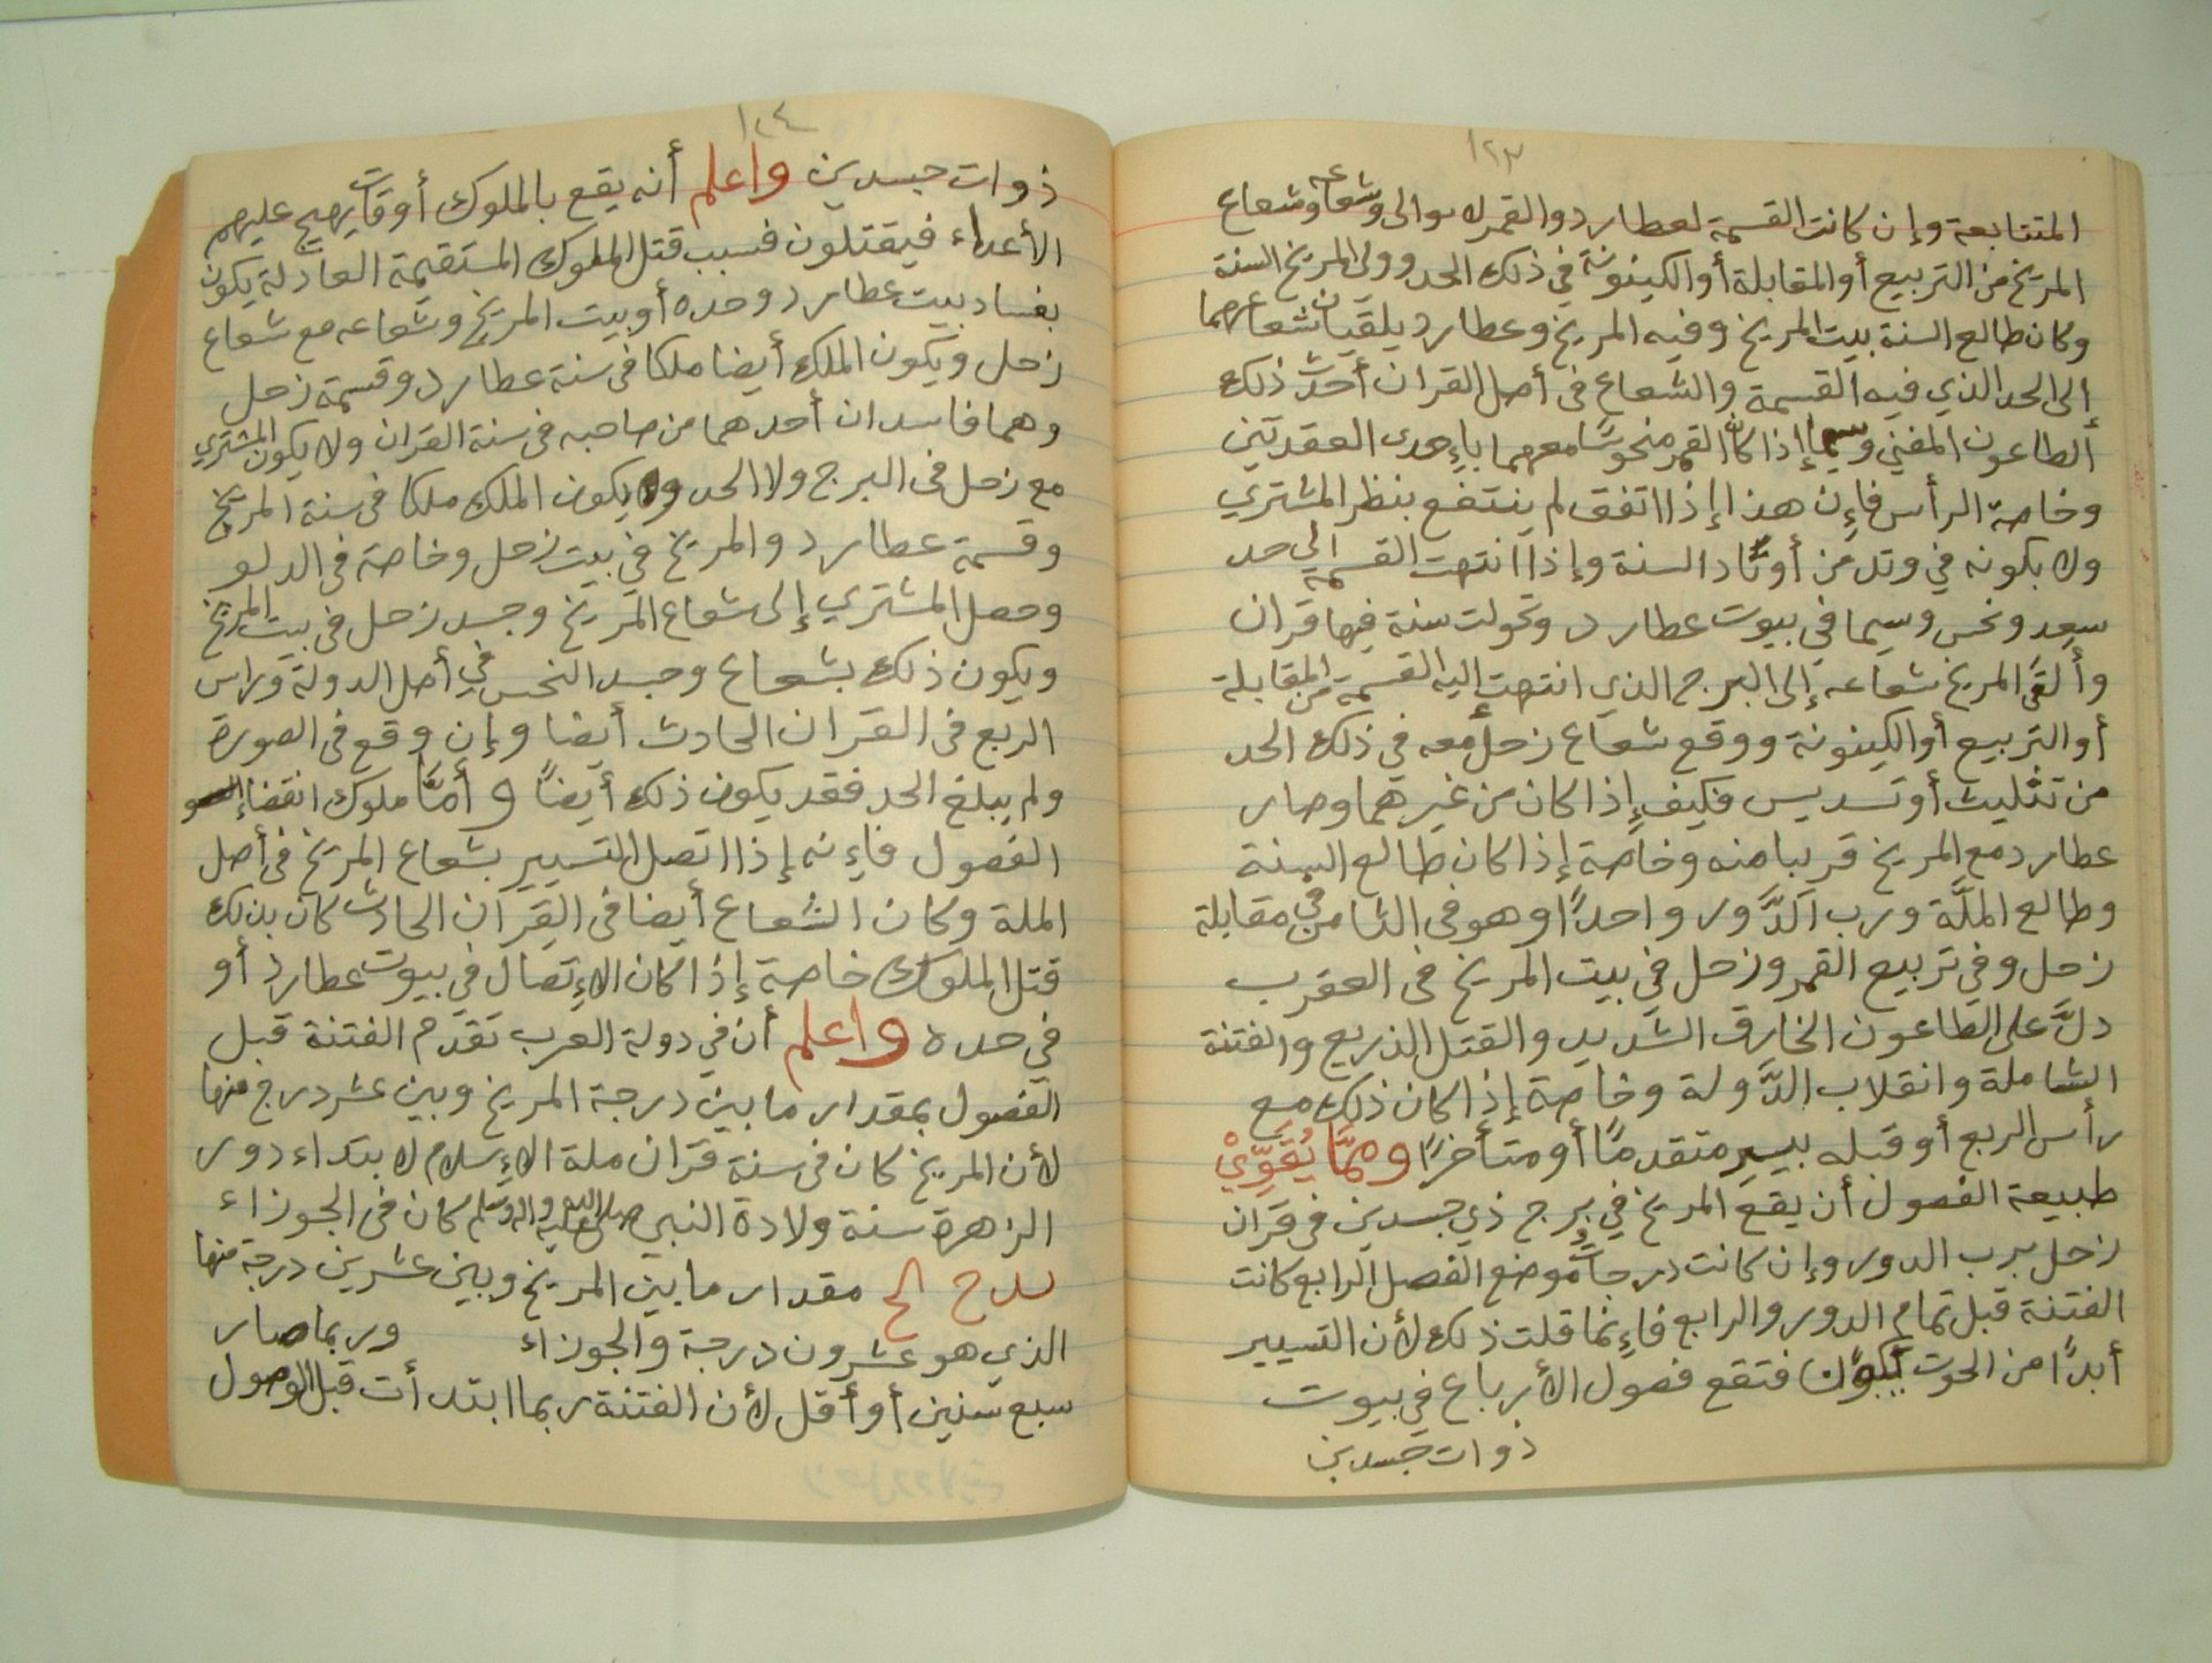 ١٢٣
المتتابعة وإن كانت القسمة لعطارد والقمر لا سوالى وشعاعه وشعاع
المريخ من التربيع أو المقابلة أو الكينونة في ذلك الحد وولي المريخ السنة
وكان طالع السنة بيت المريخ وفيه المريخ وعطارد يلقيان شعاعهما
إلى الحد الذي فيه القسمة والشعاع في أصل القران أحدث ذلك
الطاعون المفني وسيما إذا كان القمر منحوسًا معهما بإحدى العقدتين
وخاصة الرأس فإن هذا إذا اتفق لم ينتفع بنظر المشتري
ولا بكونه في وتد من أوتاد السنة وإذا انتهت القسمة إلى حد
سعد ونحس وسيما في بيوت عطارد وتحولت سنة فيها قران
وألقى المريخ شعاعه إلى البرج الذي انتهت إليه القسمة من المقابلة
أو التربيع أو الكينونة ووقع شعاع زحل معه في ذلك الحد
من تثليث أو تسديس فكيف إذا كان من غيرهما وصار
عطارد مع المريخ قريبا منه وخاصة إذا كان طالع السنة
وطالع الملَّة ورب الدَّور واحدًا وهو في الثامن في مقابلة
زحل وفي تربيع القمر وزحل في بيت المريخ في العقرب
دلَّ على الطاعون الخارق الشديد والقتل الذريع والفتنة
الشاملة وانقلاب الدَّولة وخاصة إذا كان ذلك مع
رأس الربع أو قبله بيسير متقدمًا أو متأخرًا وممَّا يُقَوِّيْ
طبيعة الفصول أن يقع المريخ في برج ذي جسدين في قران
زحل برب الدور وإن كانت درجات موضع الفصل الرابع كانت
الفتنة قبل تمام الدور والرابع فإنما قلت ذلك لأن التسيير
أبدًا من الحوت يكون فتقع فصول الأرباع في بيوت
ذوات جسدين
١٢٤
ذوات جسدين واعلم أنه يقع بالملوك أوقات يهيج عليهم
الأعداء فيقتلون فسبب قتل الملوك المستقيمة العادلة يكون
بفساد بيت عطارد وحده أو بيت المريخ وشعاعه مع شعاع
زحل ويكون الملك أيضا ملكا في سنة عطارد وقسمة زحل
وهما فاسدان أحدهما من صاحبه في سنة القران ولا يكون المشتري
مع زحل في البرج ولا الحد ويكون الملك ملكا في سنة المريخ
وقسمة عطارد والمريخ في بيت زحل وخاصة في الدلو
وحصل المشتري إلى شعاع المريخ وجسد زحل في بيت المريخ
ويكون ذلك بشعاع وجسد النحس في أصل الدولة وراس
الربع في القران الحادث أيضا وإن وقع في الصورة
ولم يبلغ الحد فقد يكون ذلك أيضًا وأمَّا ملوك انقضاء
الفصول فإنه إذا اتصل التسيير بشعاع المريخ في أصل
الملة وكان الشعاع أيضا في القران الحادث كان بذلك
قتل الملوك خاصة إذا كان الإتصال في بيوت عطارد أو
في حده واعلم أن في دولة العرب تقدم الفتنة قبل
الفصول بمقدار ما بين درجة المريخ وبين عشر درج منها
لأن المريخ كان في سنة قران ملة الإسلام لابتداء دور
الزهرة سنة ولادة النبي صلى الله عليه وآله وسلم كان في الجوزاء
مقدار ما بين المريخ وبين عشرين درجة منها
الذي هو عشرون درجة والجوزاء وربما صار
سبع سنين أو أقل لأن الفتنة ربما ابتدأت قبل الوصول